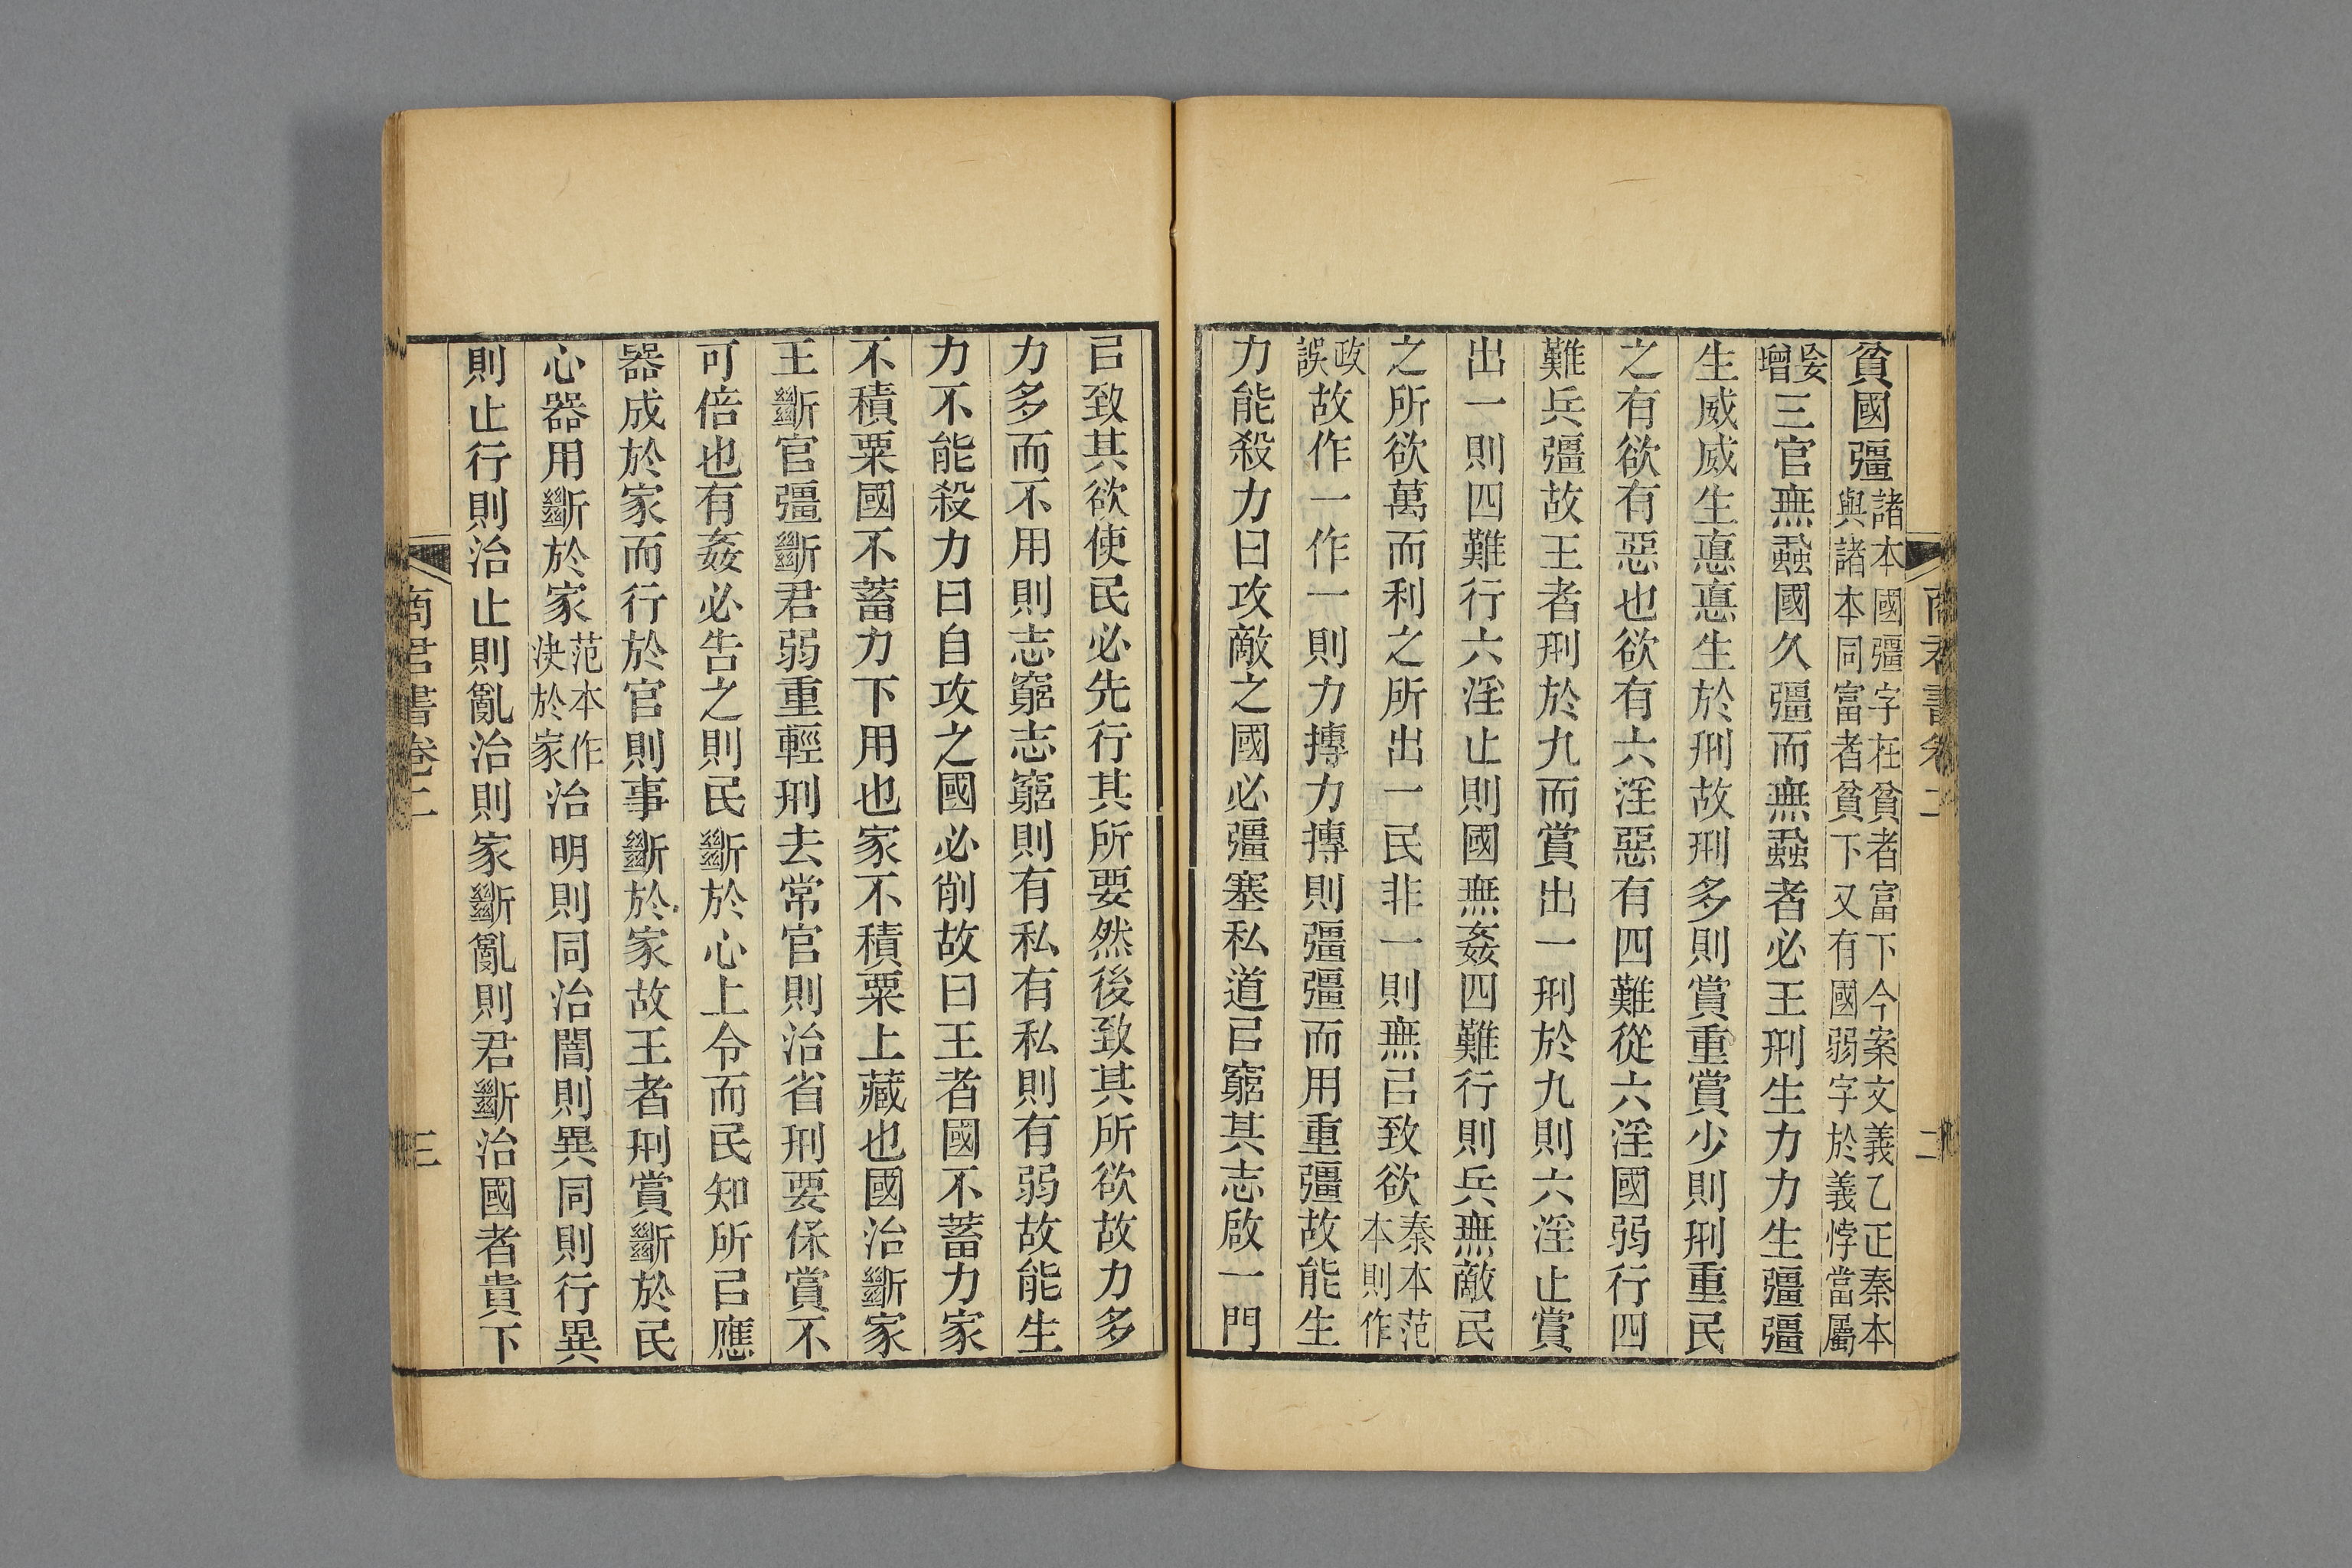 商君書卷二
二
貧國彊諸本國彊字在貧者富下今案文義乙正秦本
與諸本同富者貧下又有國弱字於義悖當屬
妄
增三官無蝨國久彊而無蝨者必王刑生力力生彊彊
生威威生悳悳生於刑故刑多則賞重賞少則刑重民
之有欲有惡也欲有六淫惡有四難從六淫國弱行四
難兵彊故王者刑於九而賞出一刑於九則六淫止賞
出一則四難行六淫止則國無姦四難行則兵無敵民
之所欲萬而利之所出一民非一則無㠯致欲秦本范
本則作
政
誤故作一作一則力摶力摶則彊彊而用重彊故能生
力能殺力曰攻敵之國必彊塞私道㠯窮其志啟一門
㠯致其欲使民必先行其所要然後致其所欲故力多
力多而不用則志窮志窮則有私有私則有弱故能生
力不能殺力曰自攻之國必削故曰王者國不蓄力家
不積粟國不蓄力下用也家不積粟上藏也國治斷家
王斷官彊斷君弱重輕刑去常官則治省刑要保賞不
可倍也有姦必告之則民斷於心上令而民知所㠯應
器成於家而行於官則事斷於家故王者刑賞斷於民
心器用斷於家范本作
決於家治明則同治闇則異同則行異
則止行則治止則亂治則家斷亂則君斷治國者貴下
商君書卷二
三